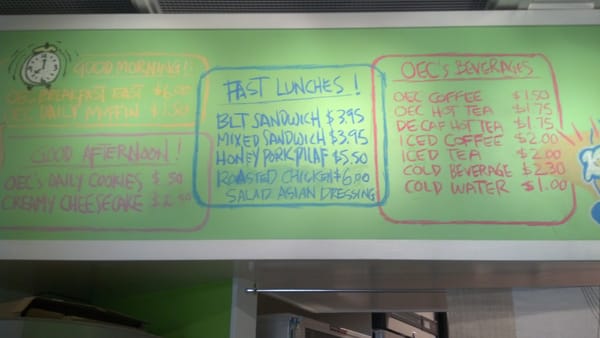 GOOD MORNING!
OEC BREAKFAST EAST $6.00
OEC DAILY MUFFIN $1.50
GOOD AFTERNOON!
OEC'S DAILY COOKIES $.50
CREAMY CHEESECAKE $2.50
FAST LUNCHES!
BLT SANDWICH $3.95
MIXED SANDWICH $3.95
HONEY PORK PILAF $5.50
ROASTED CHICKEN $6.00
SALAD ASIAN DRESSING
OEC'S BEVERAGES
OEC COFFEE $1.50
OEC HOT TEA $1.75
DECAF HOT TEA $1.75
ICED COFFEE $2.00
ICED TEA $2.00
COLD BEVERAGE $2.30
COLD WATER $1.00